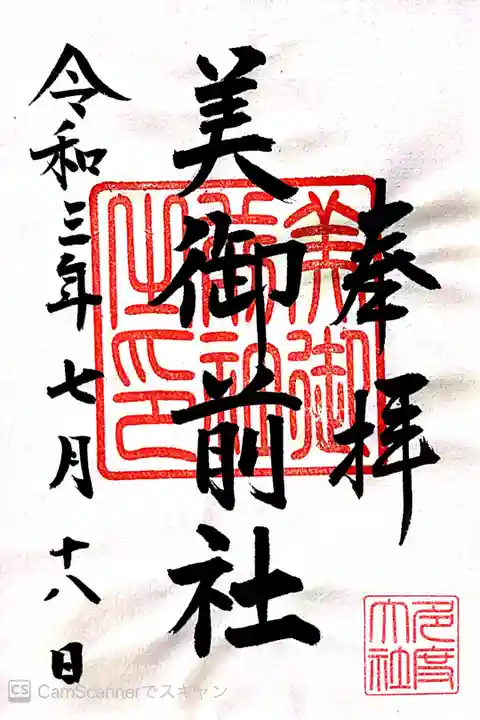 奉拝
美御前社
美御前社之印
令和三年七月十八日
多度大社
CS CamScannerでスキャン